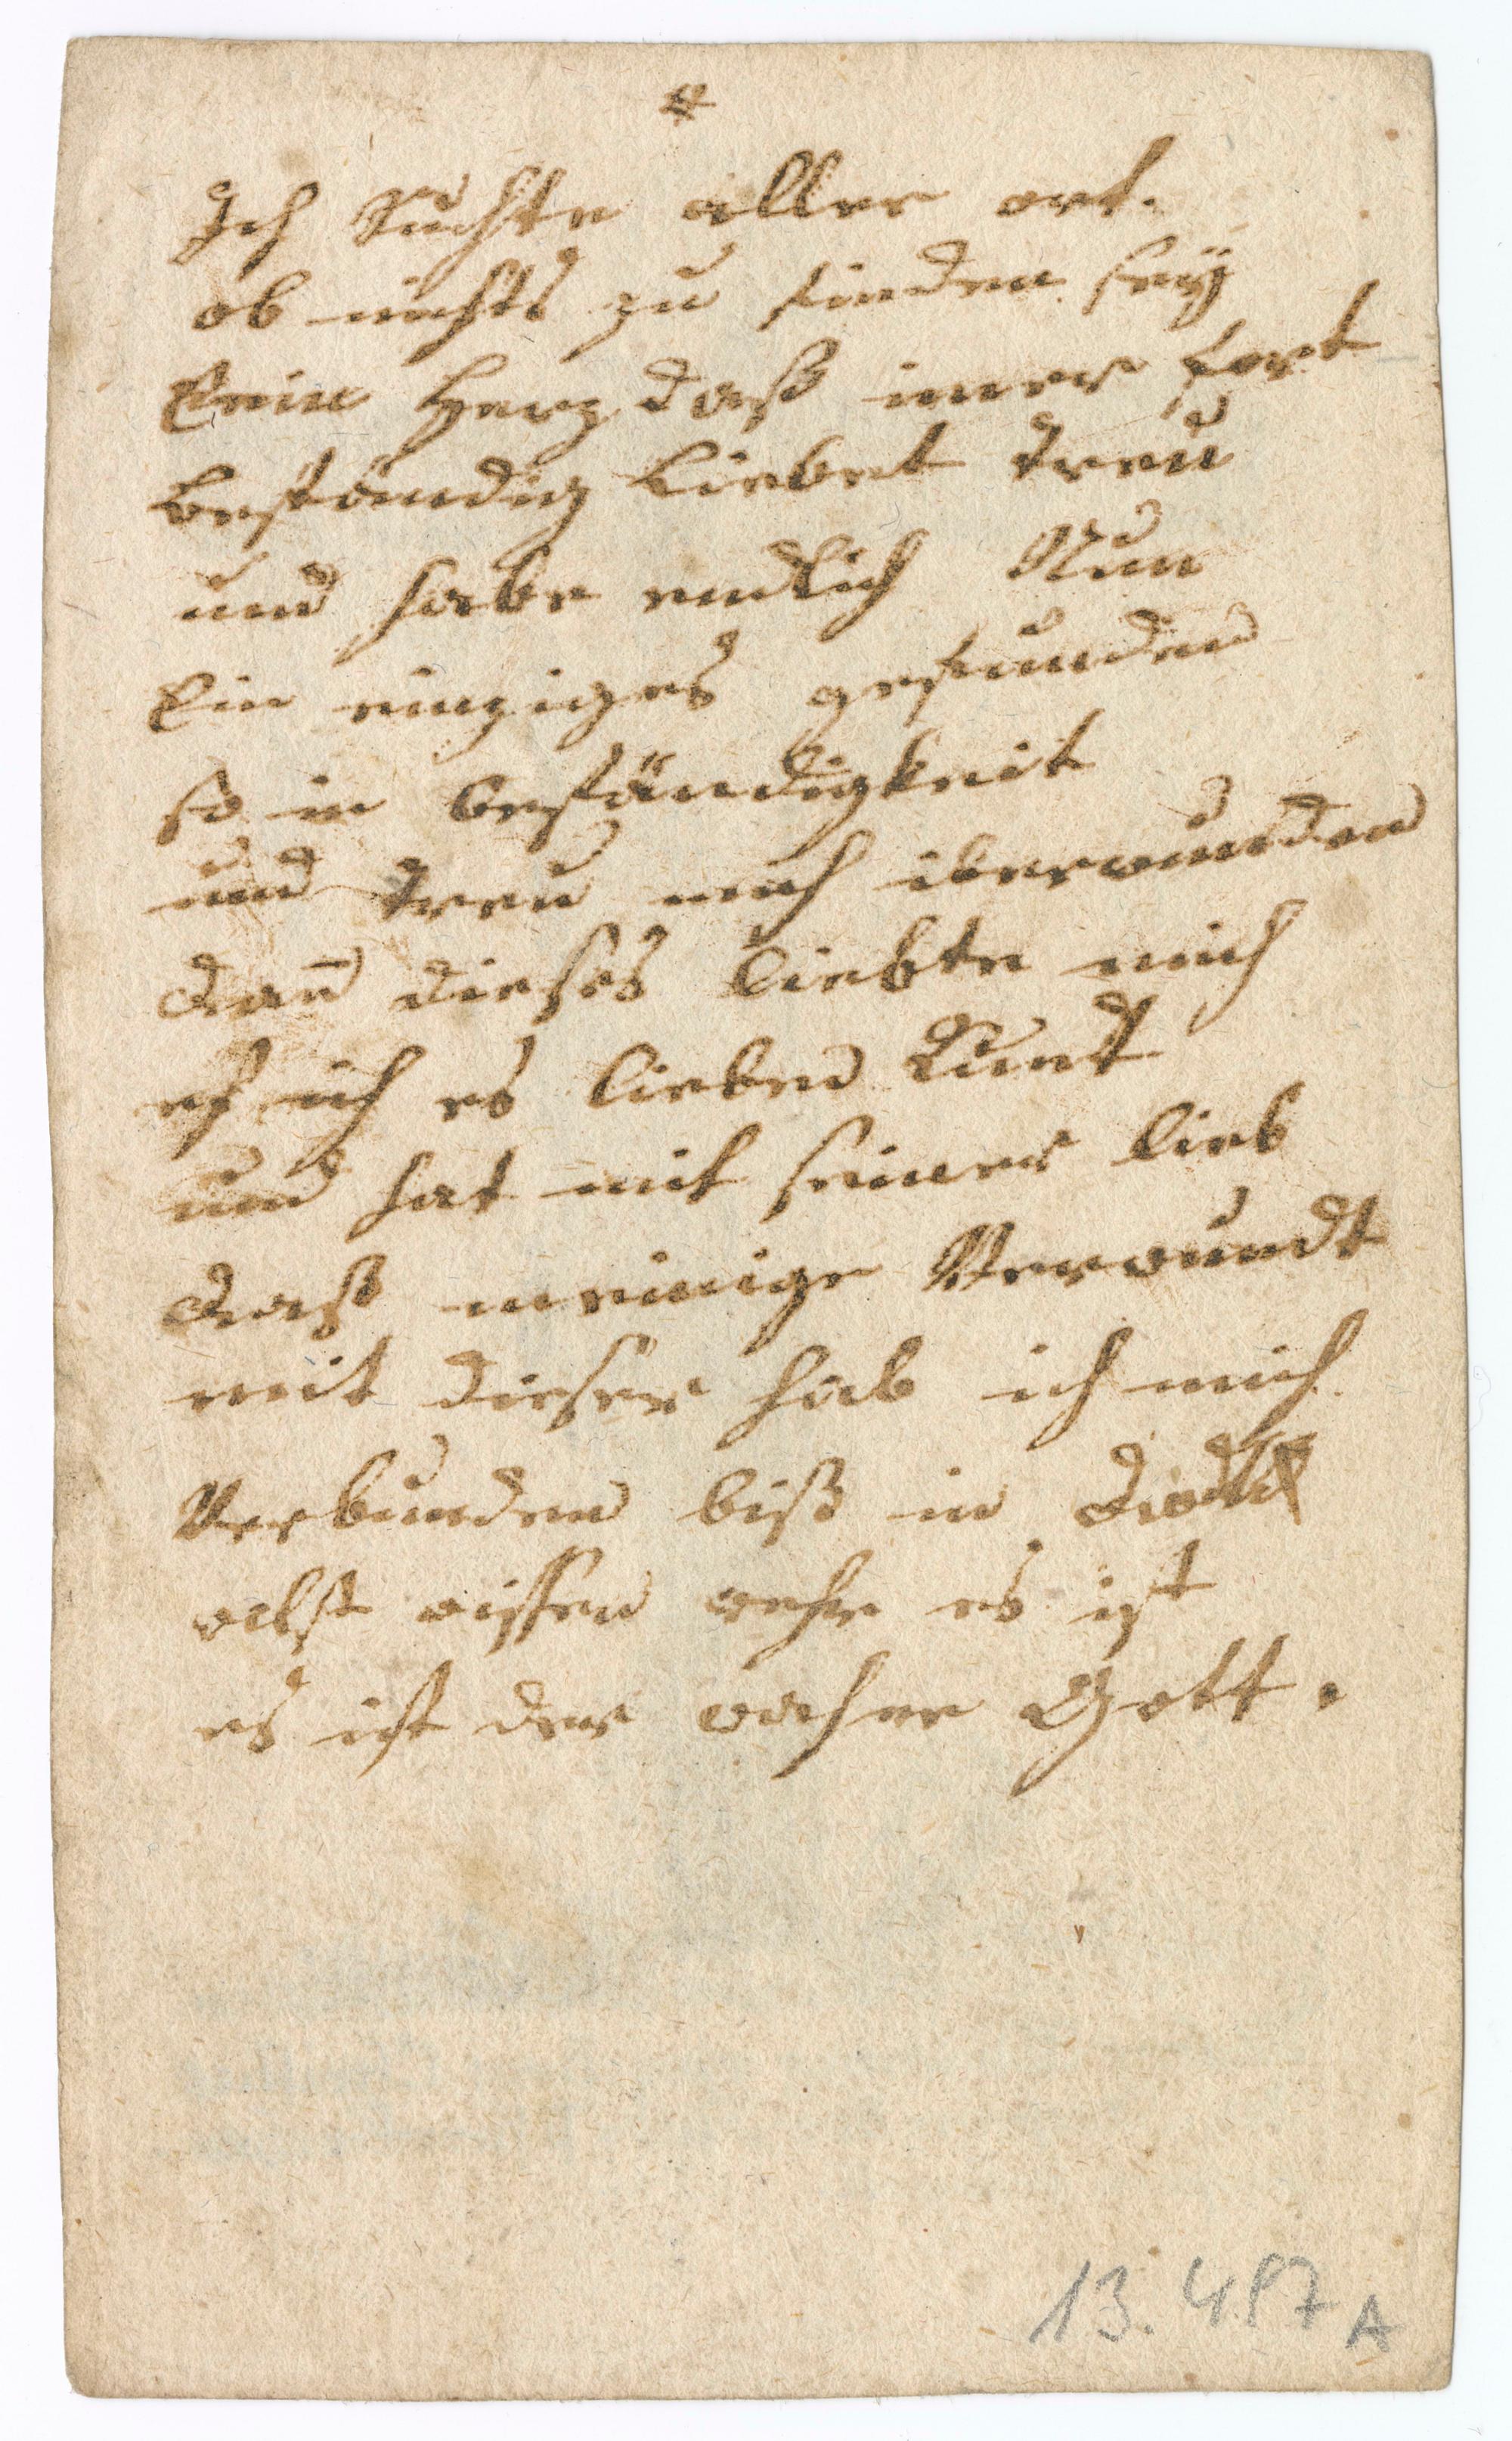 *
Ich Suchte aller ort.
ob nichts zu finden seÿ
Kein Herz daß imer fort
beständig Liebet treü
und habe endlich Nun
Ein einziges gefunden
so in beständigkeit
und treu mich iberwunden
dan̄ dieses liebte mich
eh ich es lieben kunt
und hat mit seiner lieb
daß meinige Verwundt
mit dieser hab ich mich
Verbunden biß in
wilst wissen wehr es ist
es ist der wahre Gott.
13.487 A